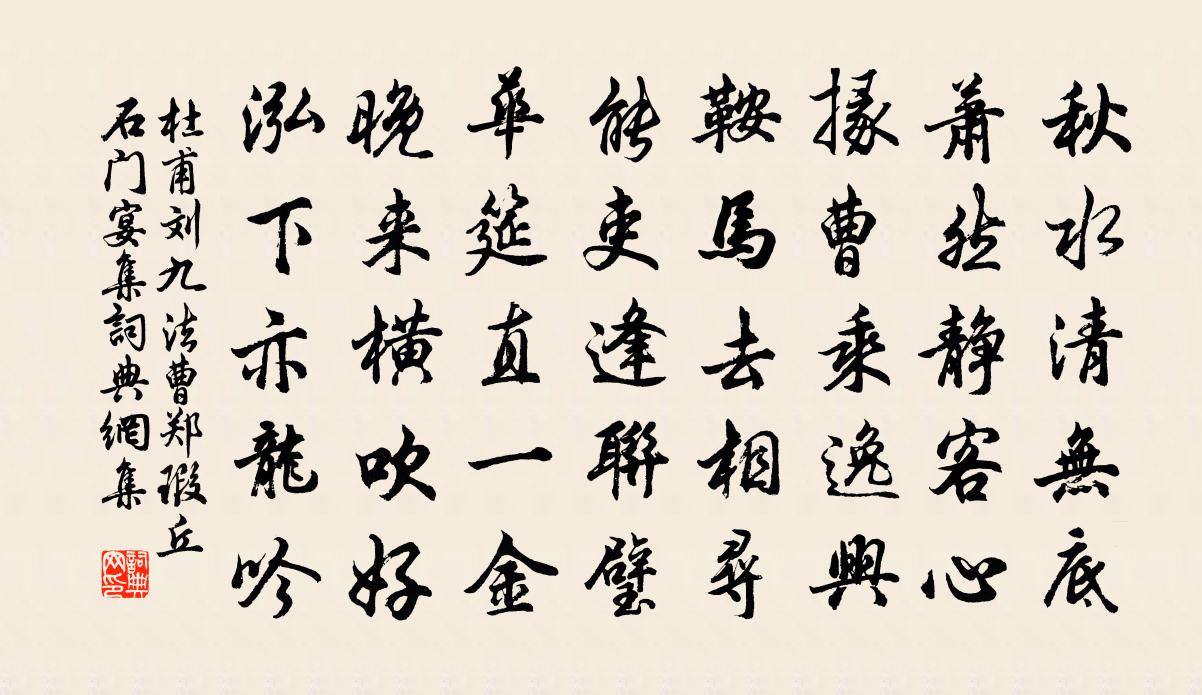 秋水清無底
蕭然静客心
掾曹乘逸興
鞍馬去相尋
能吏逢聯璧
華筵直一金
晚来橫吹好
泓下亦龍吟
杜甫刘九法曹郑瑕丘
石门宴集詞典網集
詞典
网印